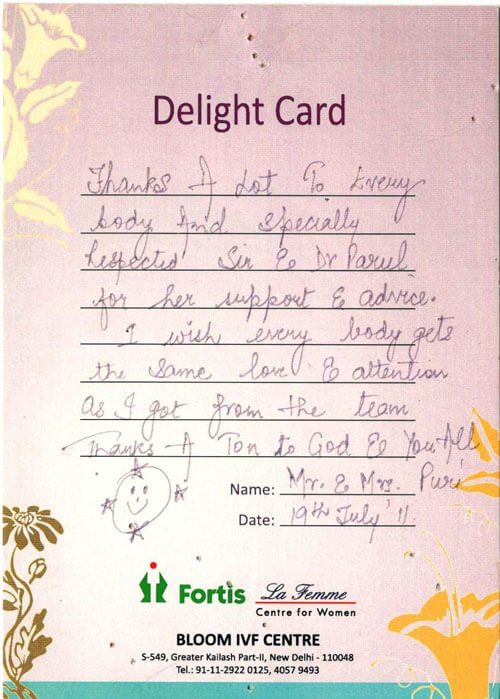 Delight Card
Thanks A Lot To Every
body And Specially
Respected Sir & Dr Parul
for her support & advice.
I wish every body gets
the Same love & attention
as I got from the team
Thanks A Ton to God & You All
Name: Mr. & Mrs. Puri
Date: 19th July' 11.
Fortis La Femme
Centre for Women
BLOOM IVF CENTRE
S-549, Greater Kailash Part-II, New Delhi - 110048
Tel.: 91-11-2922 0125, 4057 9493